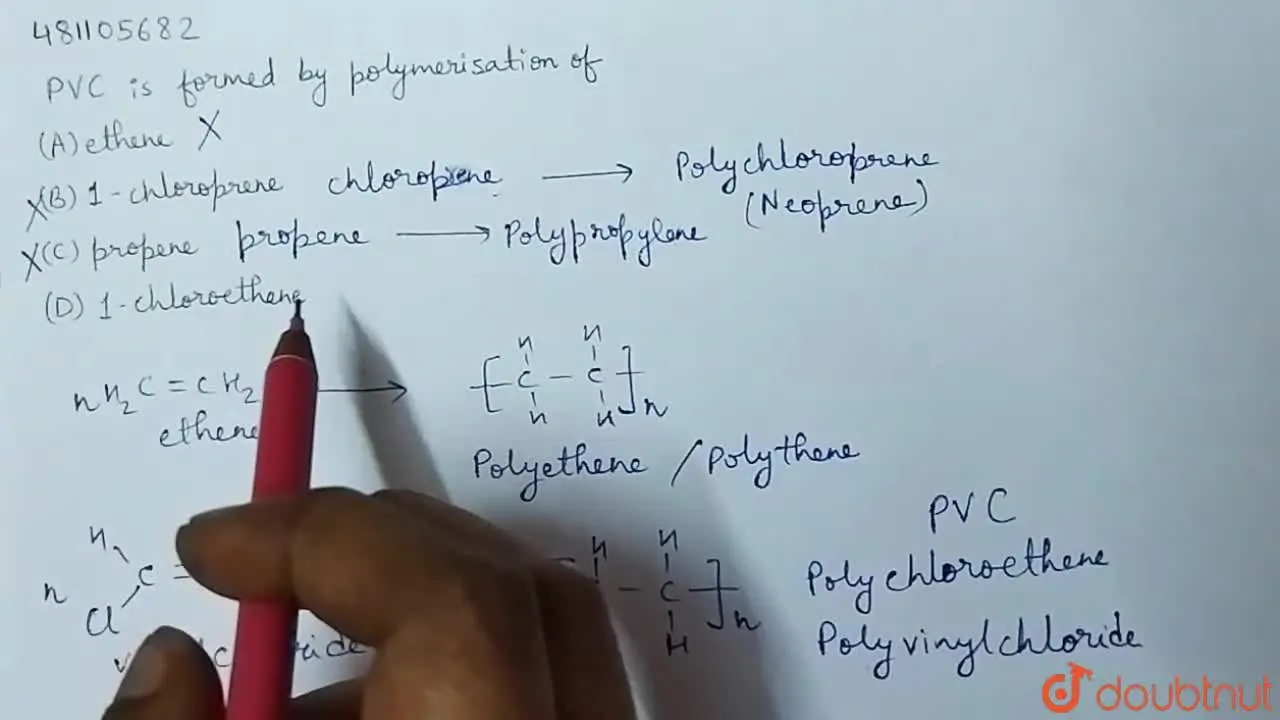 481105682
PVC is formed by polymerisation of
(A) ethene X
X(B) 1-chloroprene chloroprene → Polychloroprene
(Neoprene)
X(C) propene propene → Polypropylene
(D) 1-chloroethene
n H2C = CH2 → [ C — C ]n
H H
H H
ethene
Polyethene / Polythene
PVC
n H Cl C =
H H
— C ]n
H
Polychloroethene
Polyvinylchloride
doubtnut